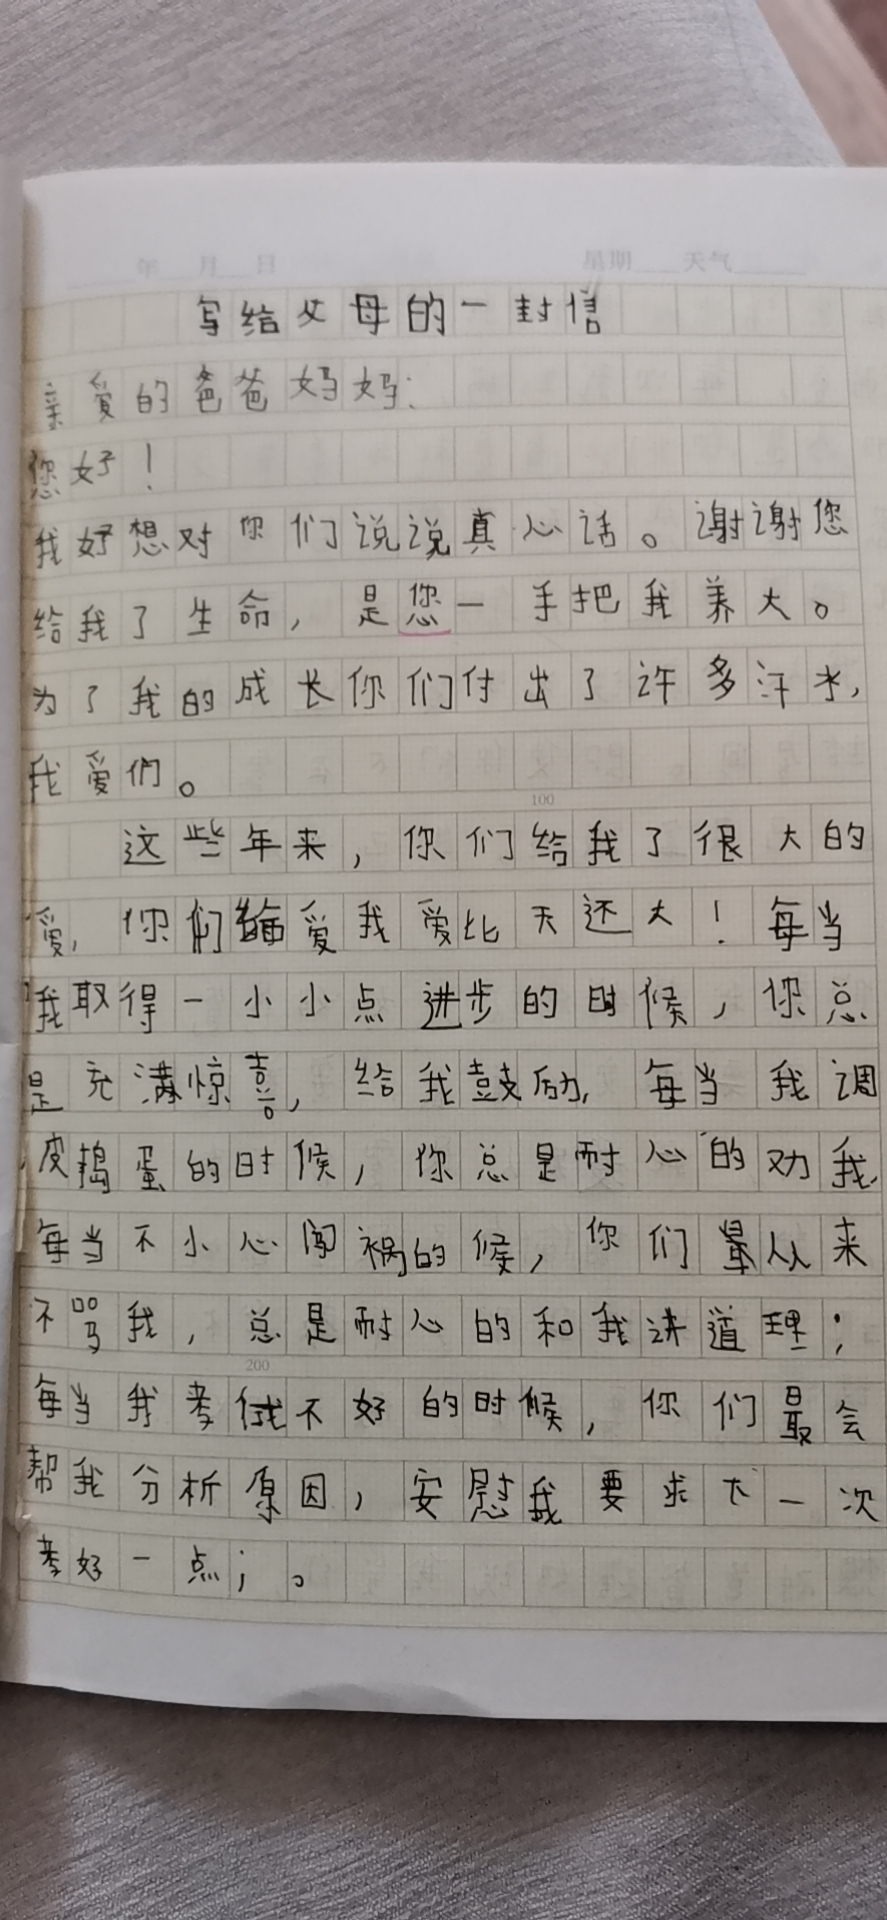 年 月 日 星期 天气
写给父母的一封信
亲爱的爸爸妈妈:
您好！
我好想对你们说说真心话。谢谢您
给我了生命，是您一手把我养大。
为了我的成长你们付出了许多汗水，
我爱们。
100
这些年来，你们给我了很大的
爱，你们爱我爱比天还大！每当
我取得一小小点进步的时候，你总
是充满惊喜，给我鼓励，每当我调
皮捣蛋的时候，你总是耐心的劝我
每当不小心闯祸的候，你们从来
不骂我，总是耐心的和我讲道理；
200
每当我考试不好的时候，你们最会
帮我分析原因，安慰我要求下一次
考好一点；。